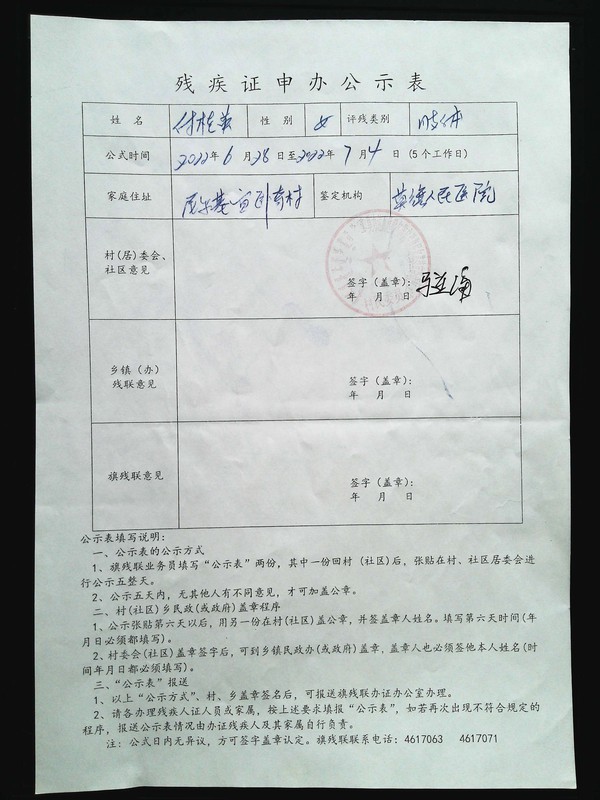 残疾证申办公示表
姓 名 付桂英 性 别 女 评残类别 肢体
公式时间 2022年6月28日至2022年7月4日(5个工作日)
家庭住址 尼尔基宜卧奇村 鉴定机构 莫旗人民医院
村(居)委会、
社区意见
签字(盖章):
年 月 日
乡镇(办)
残联意见
签字(盖章):
年 月 日
旗残联意见
签字(盖章):
年 月 日
公示表填写说明:
一、公示表的公示方式
1、旗残联业务员填写“公示表”两份,其中一份回村(社区)后,张贴在村、社区居委会进
行公示五整天。
2、公示五天内,无其他人有不同意见,才可加盖公章。
二、村(社区)乡民政(或政府)盖章程序
1、公示张贴第六天以后,用另一份在村(社区)盖公章,并签盖章人姓名。填写第六天时间(年
月日必须都填写)。
2、村委会(社区)盖章签字后,可到乡镇民政办(或政府)盖章,盖章人也必须签他本人姓名(时
间年月日都必须填写)。
三、“公示表”报送
1、以上“公示方式”、村、乡盖章签名后,可报送旗残联办证办公室办理。
2、请各办理残疾人证人员或家属,按上述要求填报“公示表”,如若再次出现不符合规定的
程序,报送公示表情况由办证残疾人及其家属自行负责。
注:公式日内无异议,方可签字盖章认定。旗残联联系电话:4617063 4617071